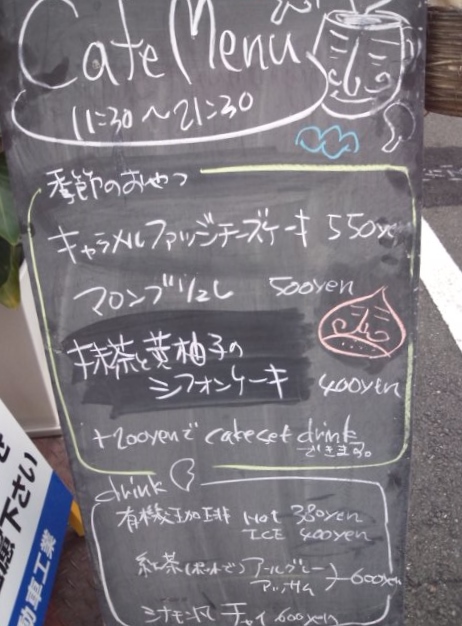 Cafe Menu
11:30～21:30
季節のおやつ
キャラメルファッジチーズケーキ 550y
マロンブリュレ 500yen
抹茶と黄柚子の
シフォンケーキ 400yen
+200yenで cakeset drink
できます。
drink
有機珈琲 Hot 380yen
ICE 400yen
紅茶(ポットで) アールグレー
アッサム 600yen
シナモン風 チャイ 600yen
慮下さい
動車工業